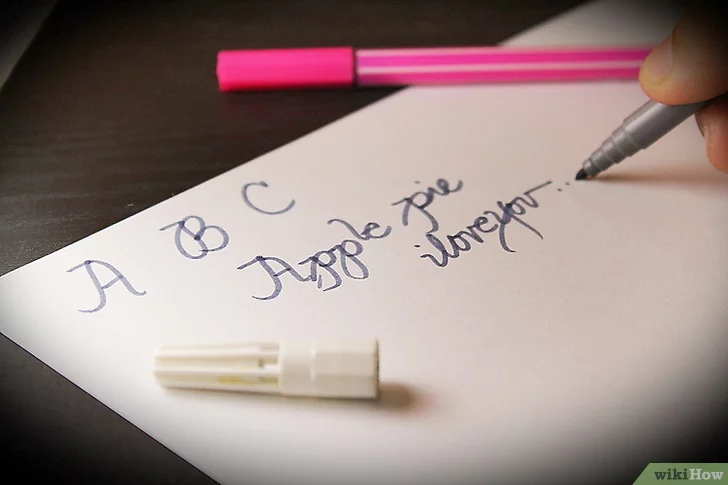 A B C
Apple pie
iloveyou...
wikiHow